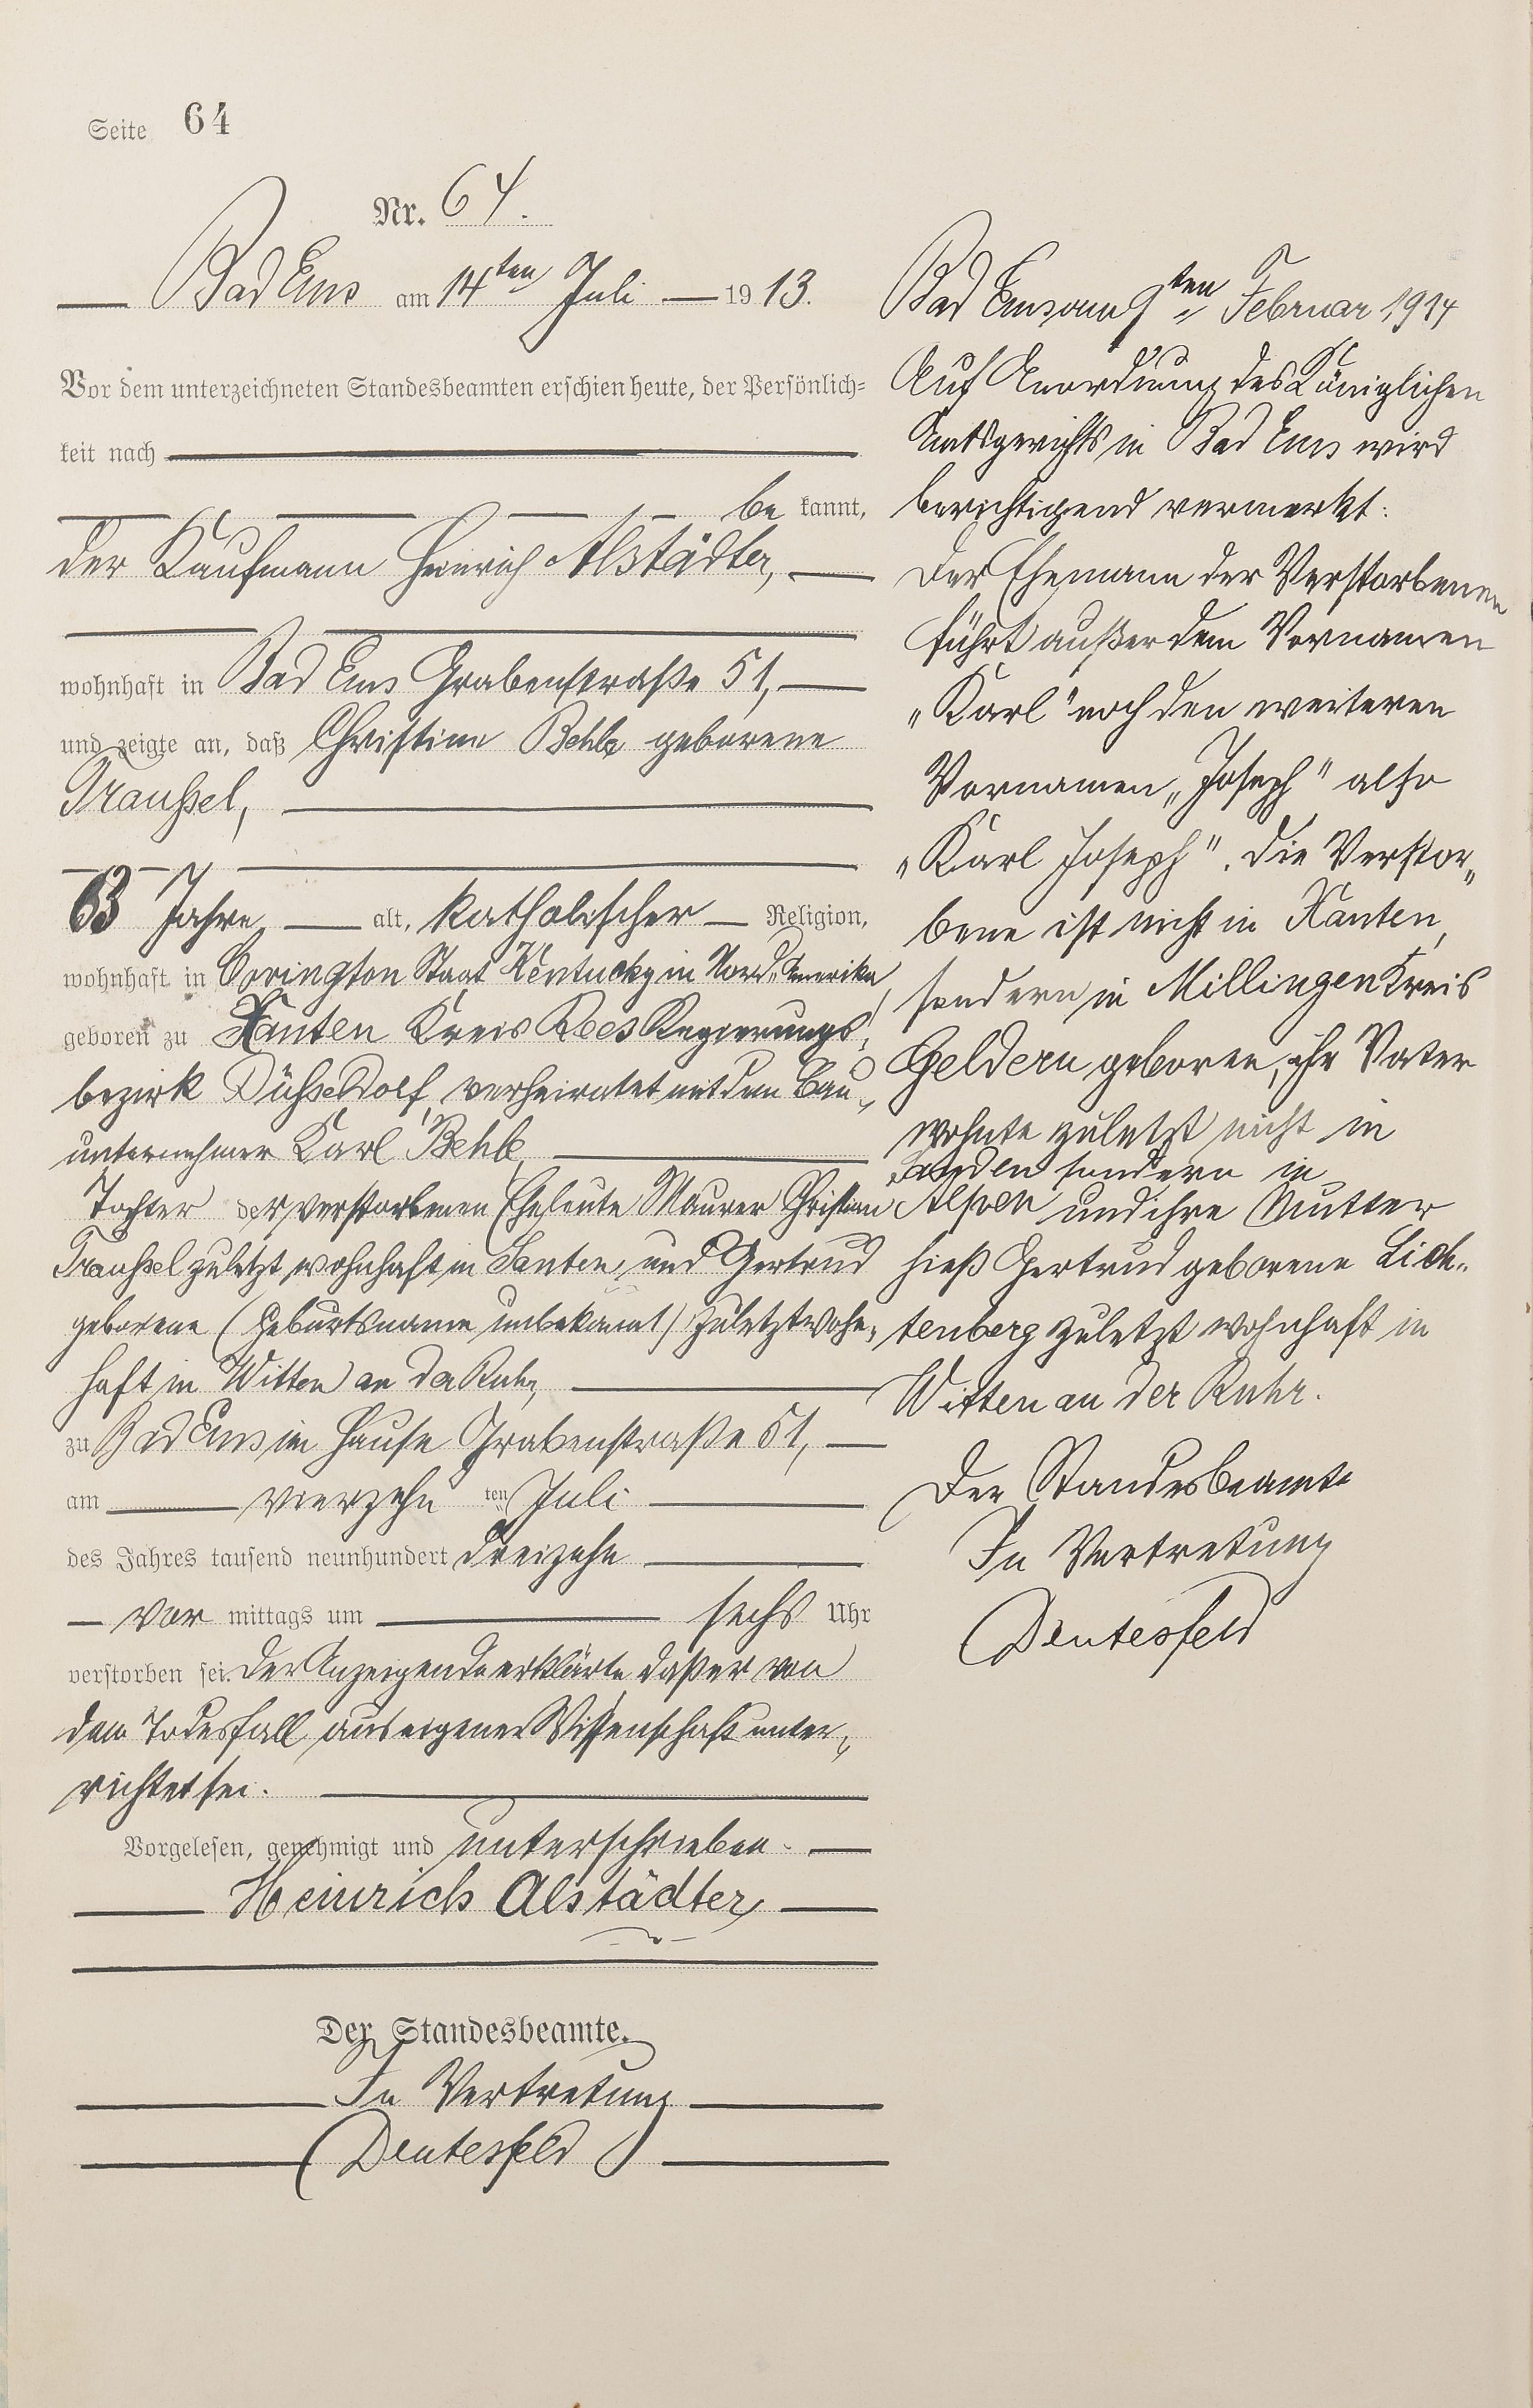 Seite 64
Nr. 64.
Bad Ems am 14ten Juli 1913.
Vor dem unterzeichneten Standesbeamten erschien heute, der Persönlich=
keit nach
be kannt,
der Kaufmann Heinrich Alstädter,
wohnhaft in Bad Ems Grabenstraße 51,
und zeigte an, daß Christine Behle geborene
Traußel,
63 Jahre alt, katholischer Religion,
wohnhaft in Covington Staat Kentucky in Nord„Amerika,
geboren zu Xanten Kreis Rees Regierungs„
bezirk Düßeldorf, verheiratet mit dem Bau„
unternehmer Karl Behle,
Tochter der verstorbenen Eheleute Maurer Christian
Traußel zuletzt wohnhaft in Santen, und Gertrud
geborene (Geburtsname unbekannt) zuletzt wohn„
haft in Witten an der Ruhr,
zu Bad Ems im Hause Grabenstraße 51,
am vierzehn ten Juli
des Jahres tausend neunhundert dreizehn
vor mittags um sechs Uhr
verstorben sei. Der Anzeigende erklärte, daß er von
dem Todesfall aus eigener Wissenschaft unter„
richtet sei.
Vorgelesen, genehmigt und unterschrieben.
Heinrich Alstädter
Der Standesbeamte.
In Vertretung
Deutesfeld
Bad Ems am 9ten Februar 1914
Auf Anordnung des Königlichen
Amtsgerichts in Bad Ems wird
berichtigend vermerkt:
Der Ehemann der Verstorbenen
führt außer dem Vornamen
„Karl" noch den weiteren
Vornamen „Joseph" also
„Karl Joseph". Die Verstor„
bene ist nicht in Xanten,
sondern in Millingen Kreis
Geldern geboren, ihr Vater
wohnte zuletzt nicht in
sondern in
Alpen und ihre Mutter
hieß Gertrud geborene Lich„
tenberg zuletzt wohnhaft in
Witten an der Ruhr.
Der Standesbeamte
In Vertretung
Deutesfeld